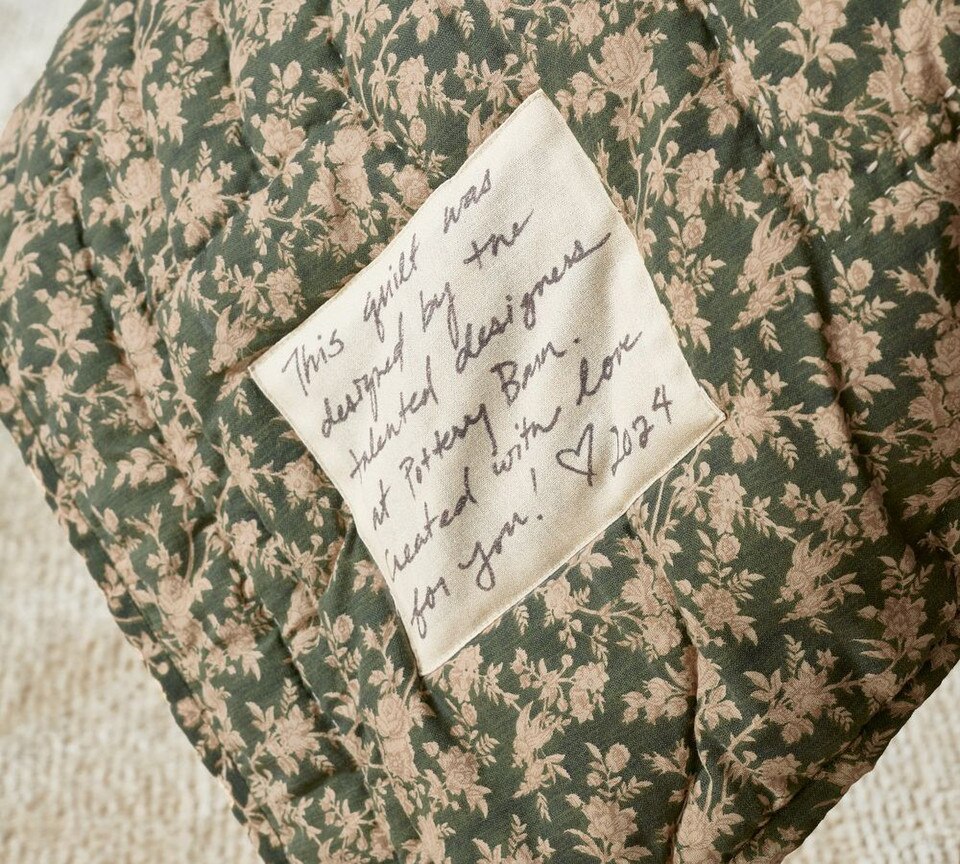 This quilt was
designed by the
talented designers
at Pottery Barn.
Created with love
for you! ♡ 2024